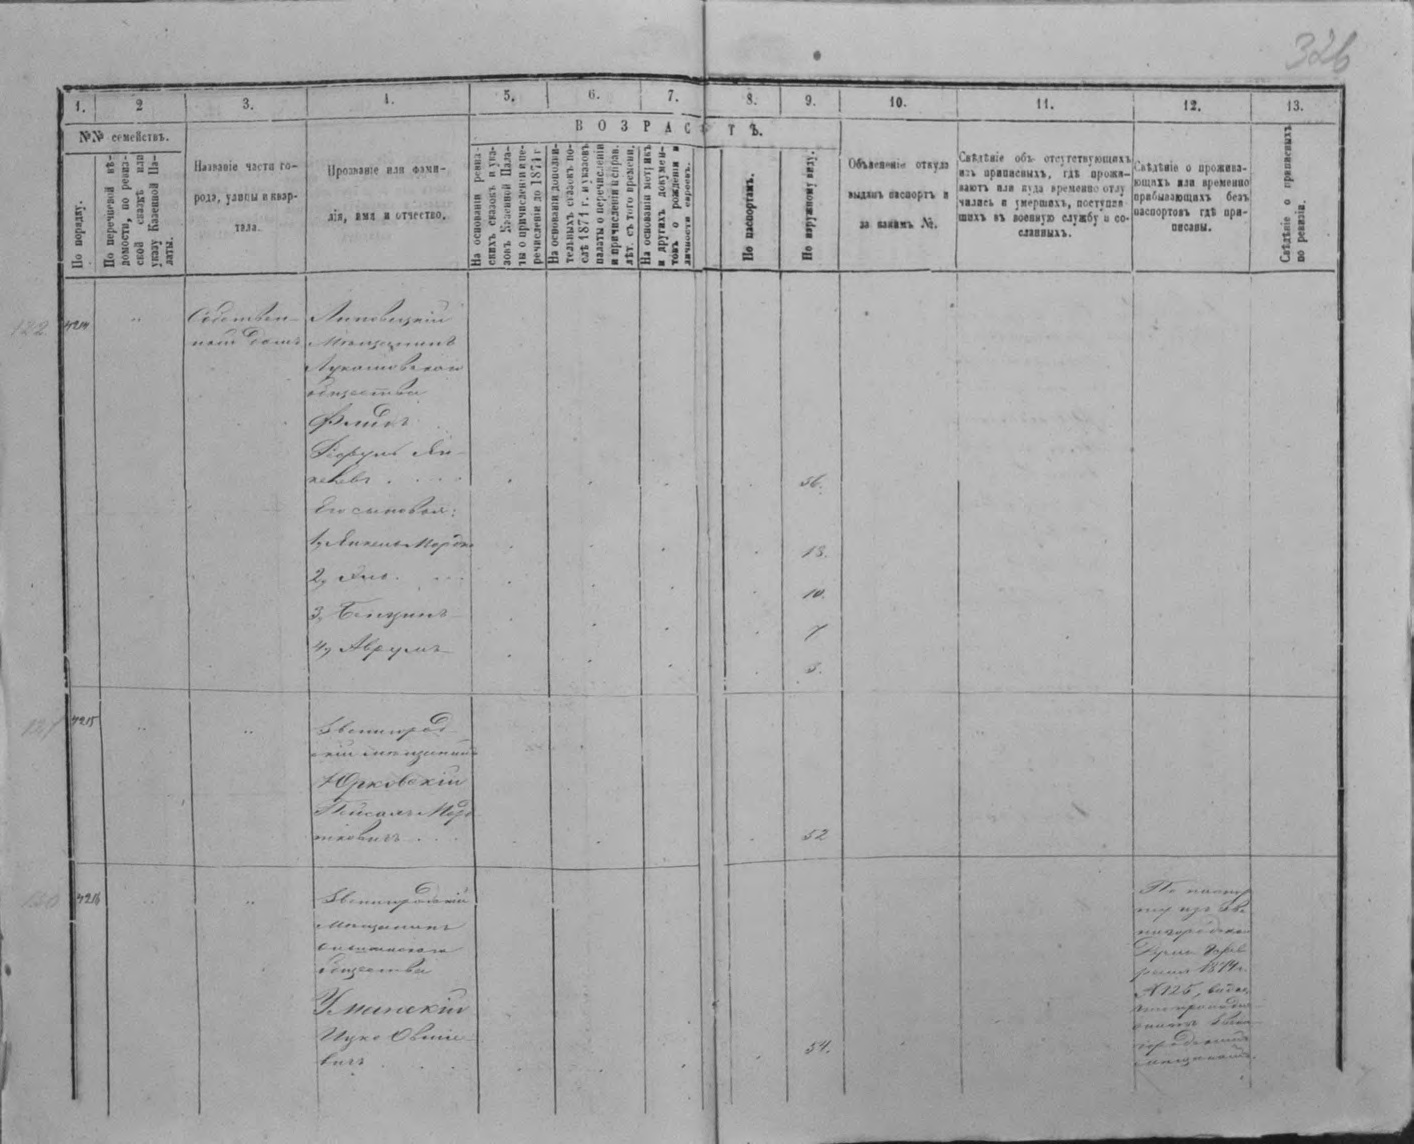 326
1. 2 3. 4. 5. 6. 7. 8. 9. 10. 11. 12. 13.
№№ семействъ.
По порядку.
По перечневой вѣ-
домости, по ревиз-
ской сказкѣ или
указу Казенной Па-
латы.
Названіе части го-
рода, улицы и квар-
тала.
Прозваніе или фами-
лія, имя и отчество.
ВОЗРАСТЪ.
На основаніи ревиз-
скихъ сказокъ и ука-
зовъ Казенной Пала-
ты о причисленіи и пе-
речисленіи до 1874 г
На основаніи дополни-
тельныхъ сказокъ по-
слѣ 1874 г. и указовъ
палаты о перечисленіи
и причисленіи и справ.
лѣт. съ того времени.
На основаніи метрикъ
и другихъ докумен-
товъ о рожденіи и
личности евреевъ.
По паспортамъ.
По наружному виду.
Объясненіе откуда
выданъ паспортъ и
за какимъ №.
Свѣдѣніе объ отсутствующихъ
изъ приписныхъ, гдѣ прожи-
ваютъ или куда временно отлу
чились и умершихъ, поступив
шихъ въ военную службу и со-
сланныхъ.
Свѣдѣніе о прожива-
ющихъ или временно
прибывающихъ безъ
паспортовъ гдѣ при-
писаны.
Свѣдѣніе о приписныхъ
по ревизіи.
122
4214
Собствен-
ный домъ
Мѣщанинъ
общества
56.
Его сыновья:
1, Янкель Мордко
13.
2,
10.
3, Бенціинъ
7
4, Аврумъ
3.
121
4215
Звенигород-
скій мѣщанинъ
Юрковскій
Пейсахъ Мор-
тковичъ
52
120
4216
Звенигородскій
Мѣщанинъ
общества
Уманскій
Ицко Овшіе-
вичъ
54.
По паспор
ту изъ Зве
нигородской
Думы
1874 г.
№ 125,
мѣщаниномъ.